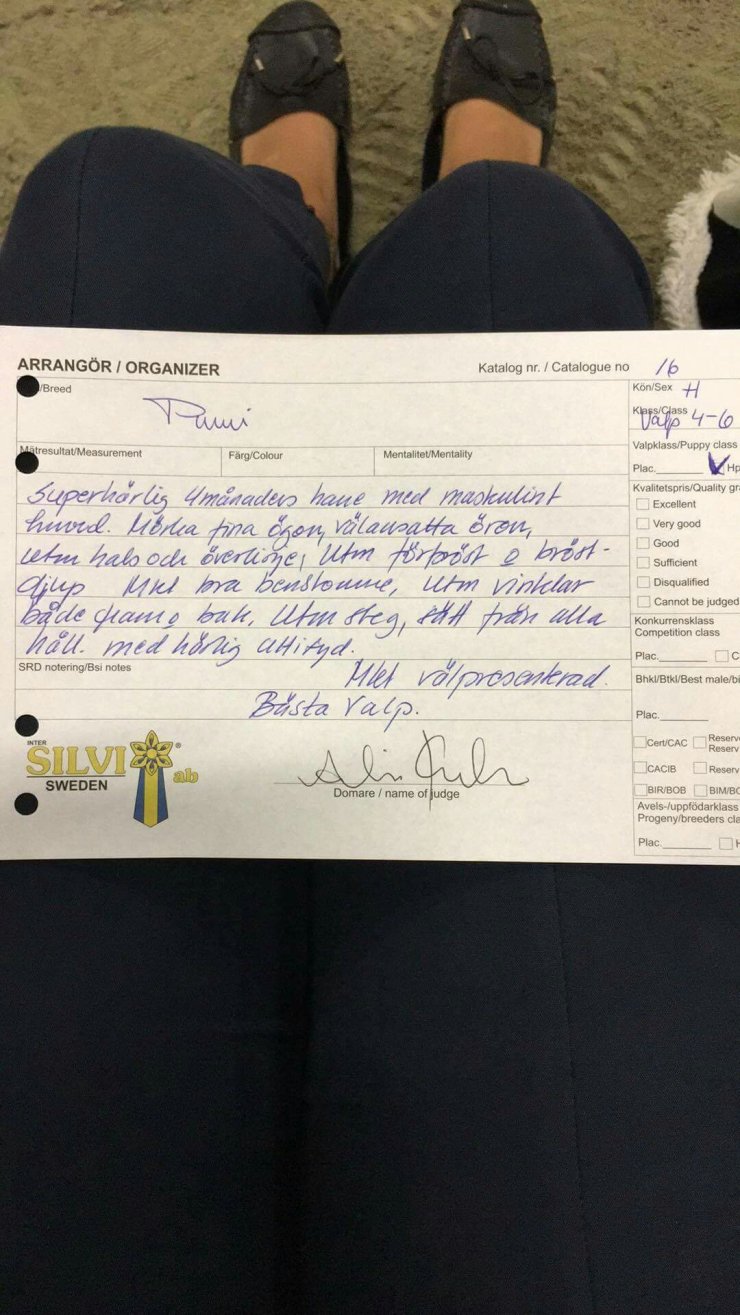 ARRANGÖR / ORGANIZER
Katalog nr. / Catalogue no 16
/Breed
Pumi
Kön/Sex H
Klass/Class
Valp 4-6
Mätresultat/Measurement
Färg/Colour
Mentalitet/Mentality
Valpklass/Puppy class
Plac. Hp
Superhärlig 4månaders hane med maskulint
huvud. Mörka fina ögon, välansatta öron,
utm hals och överlinje, utm förbröst o bröst-
djup Mkt bra benstomme, utm vinklar
både fram o bak. Utm steg, sätt från alla
håll. med härlig attityd.
Mkt välpresenterad.
Bästa Valp.
SRD notering/Bsi notes
Kvalitetspris/Quality gra
Excellent
Very good
Good
Sufficient
Disqualified
Cannot be judged
Konkurrensklass
Competition class
Plac. C
Bhkl/Btkl/Best male/bi
Plac.
Cert/CAC Reserv
Reserv
CACIB Reserv
BIR/BOB BIM/BO
Avels-/uppfödarklass
Progeny/breeders cla
Plac. H
INTER
SILVI ® ab
SWEDEN
Domare / name of judge